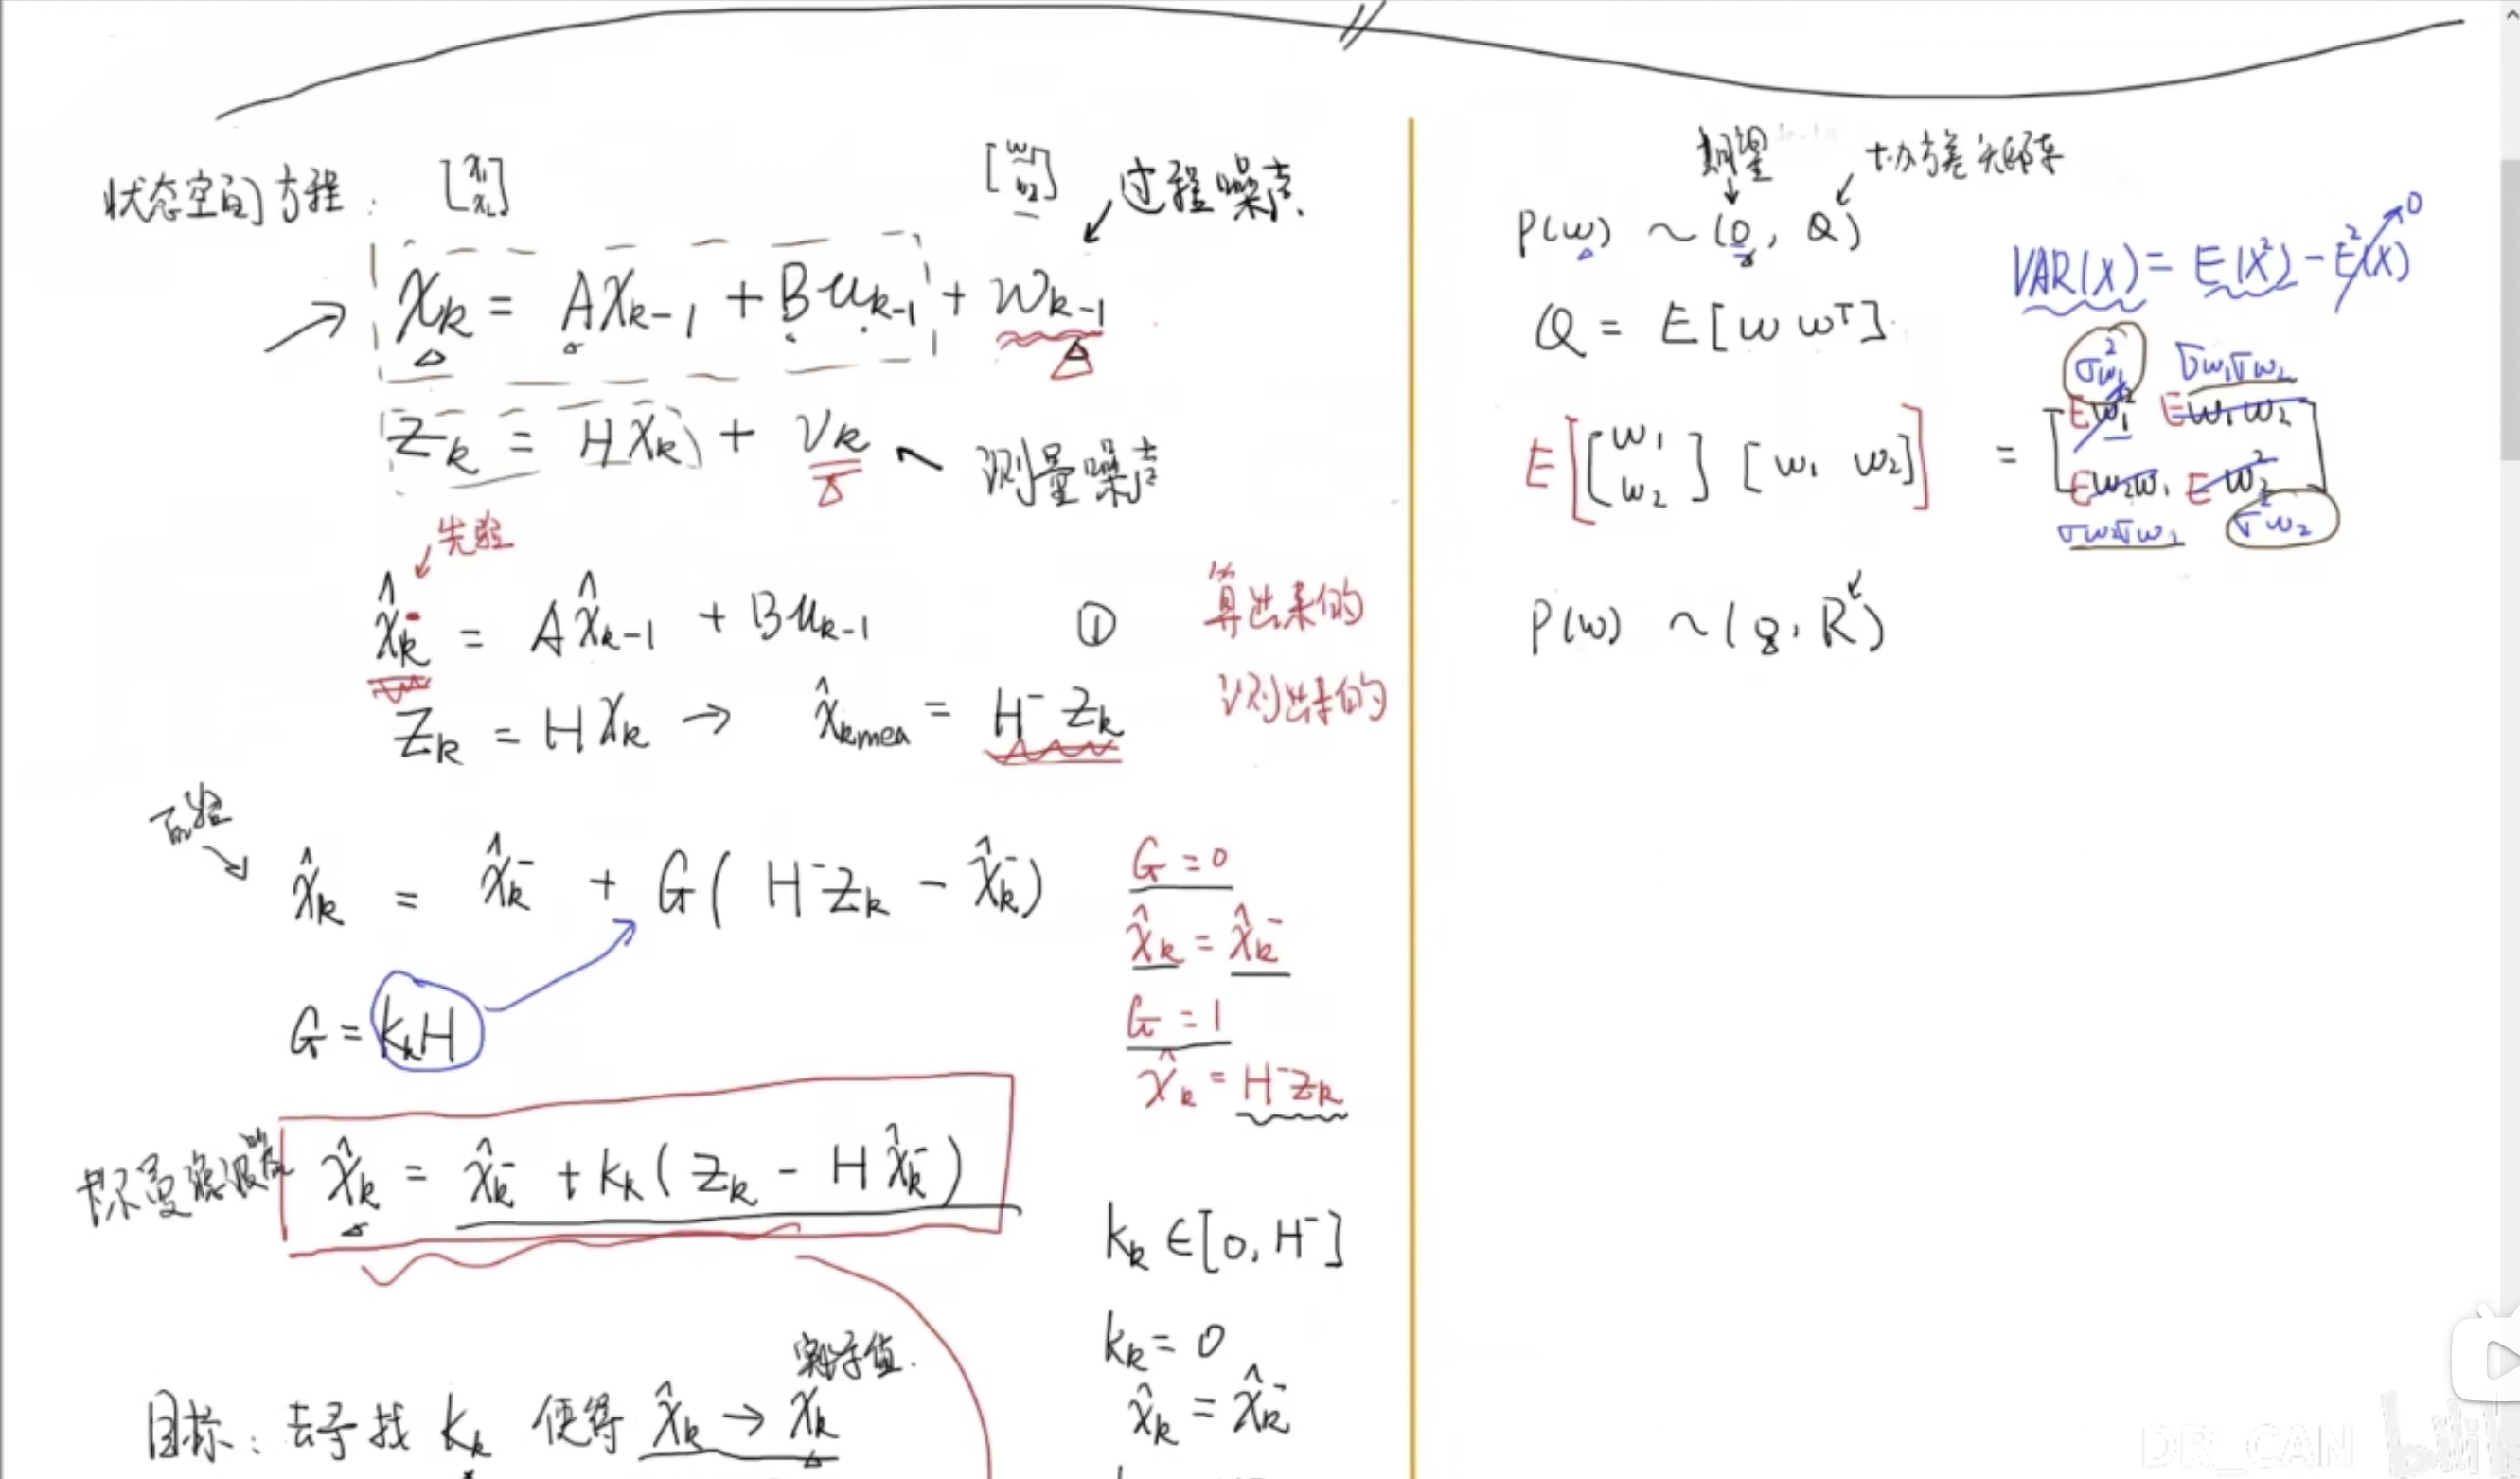 状态空间方程: [x₁ x₂]
[w₁ w₂] 过程噪声.
X_k = AX_{k-1} + Bu_{k-1} + w_{k-1}
Z_k = HX_k + V_k 测量噪声
先验
x̂_k⁻ = Ax̂_{k-1} + Bu_{k-1} ① 算出来的
Z_k = HX_k → x̂_{kmea} = H⁻Z_k 测出来的
后验
x̂_k = x̂_k⁻ + G(H⁻Z_k - x̂_k⁻)
G = 0
x̂_k = x̂_k⁻
G = 1
x̂_k = H⁻Z_k
G = K_kH
卡尔曼滤波
x̂_k = x̂_k⁻ + K_k(Z_k - Hx̂_k⁻)
K_k ∈ [0, H⁻]
K_k = 0
x̂_k = x̂_k⁻
实际值.
目标: 去寻找 K_k 使得 x̂_k → X_k
期望 协方差矩阵
P(w) ~ (0, Q)
VAR(X) = E(X²) - E²(X) 0
Q = E[w wᵀ]
σ²w₁ σw₁σw₂
E[[w₁ w₂] [w₁ w₂]] = [Ew₁² Ew₁w₂
Ew₂w₁ Ew₂²]
σw₂σw₁ σ²w₂
P(w) ~ (0, R)
DR_CAN